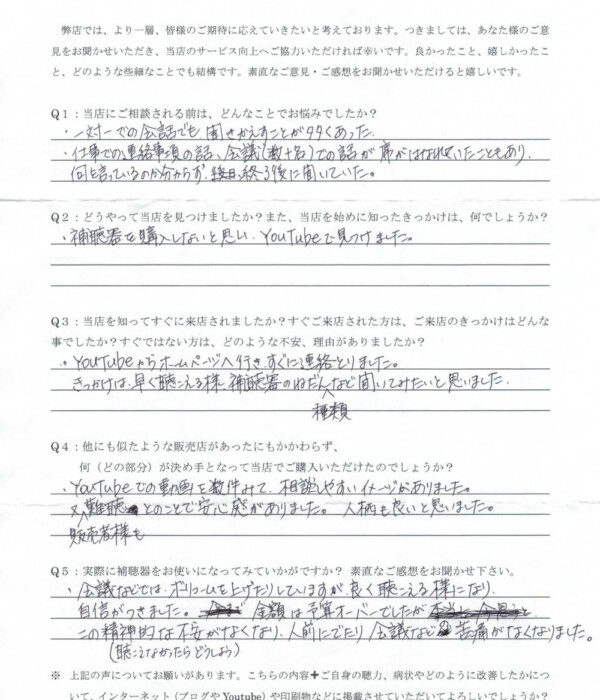 弊店では、より一層、皆様のご期待に応えていきたいと考えております。つきましては、あなた様のご意
見をお聞かせいただき、当店のサービス向上へご協力いただければ幸いです。良かったこと、嬉しかったこ
と、どのような些細なことでも結構です。素直なご意見・ご感想をお聞かせいただけると嬉しいです。
Q1：当店にご相談される前は、どんなことでお悩みでしたか？
・一対一での会話でも、聞きかえすことが多くあった。
・仕事での連絡事項の話、会議(数十名)での話が席がはなれていたこともあり、
何を言っているのか分からず、後日、終了後に聞いていた。
Q2：どうやって当店を見つけましたか？また、当店を始めに知ったきっかけは、何でしょうか？
・補聴器を購入しないと思い、YouTubeで見つけました。
Q3：当店を知ってすぐに来店されましたか？すぐご来店された方は、ご来店のきっかけはどんな
事でしたか？すぐではない方は、どのような不安、理由がありましたか？
・YouTubeからホームページへ行き、すぐに連絡とりました。
きっかけは、早く聴こえる様、補聴器のねだんなど聞いてみたいと思いました。
種類
Q4：他にも似たような販売店があったにもかかわらず、
何（どの部分）が決め手となって当店でご購入いただけたのでしょうか？
・YouTubeでの動画を数件みて、相談しやすいイメージがありました。
又難聴とのことで安心感がありました。人柄も良いと思いました。
販売者様も
Q5：実際に補聴器をお使いになってみていかがですか？ 素直なご感想をお聞かせ下さい。
・会議などでは、ボリュームを上げたりしていますが、良く聴こえる様になり、
自信がつきました。金額は予算オーバーでしたが
この精神的な不安がなくなり、人前にでたり、会議など苦痛がなくなりました。
(聴こえなかったらどうしよう)
※ 上記の声についてお願いがあります。こちらの内容✚ご自身の聴力、病状やどのように改善したかにつ
いて、インターネット（ブログや Youtube）や印刷物などに掲載させていただいてよろしいでしょうか？